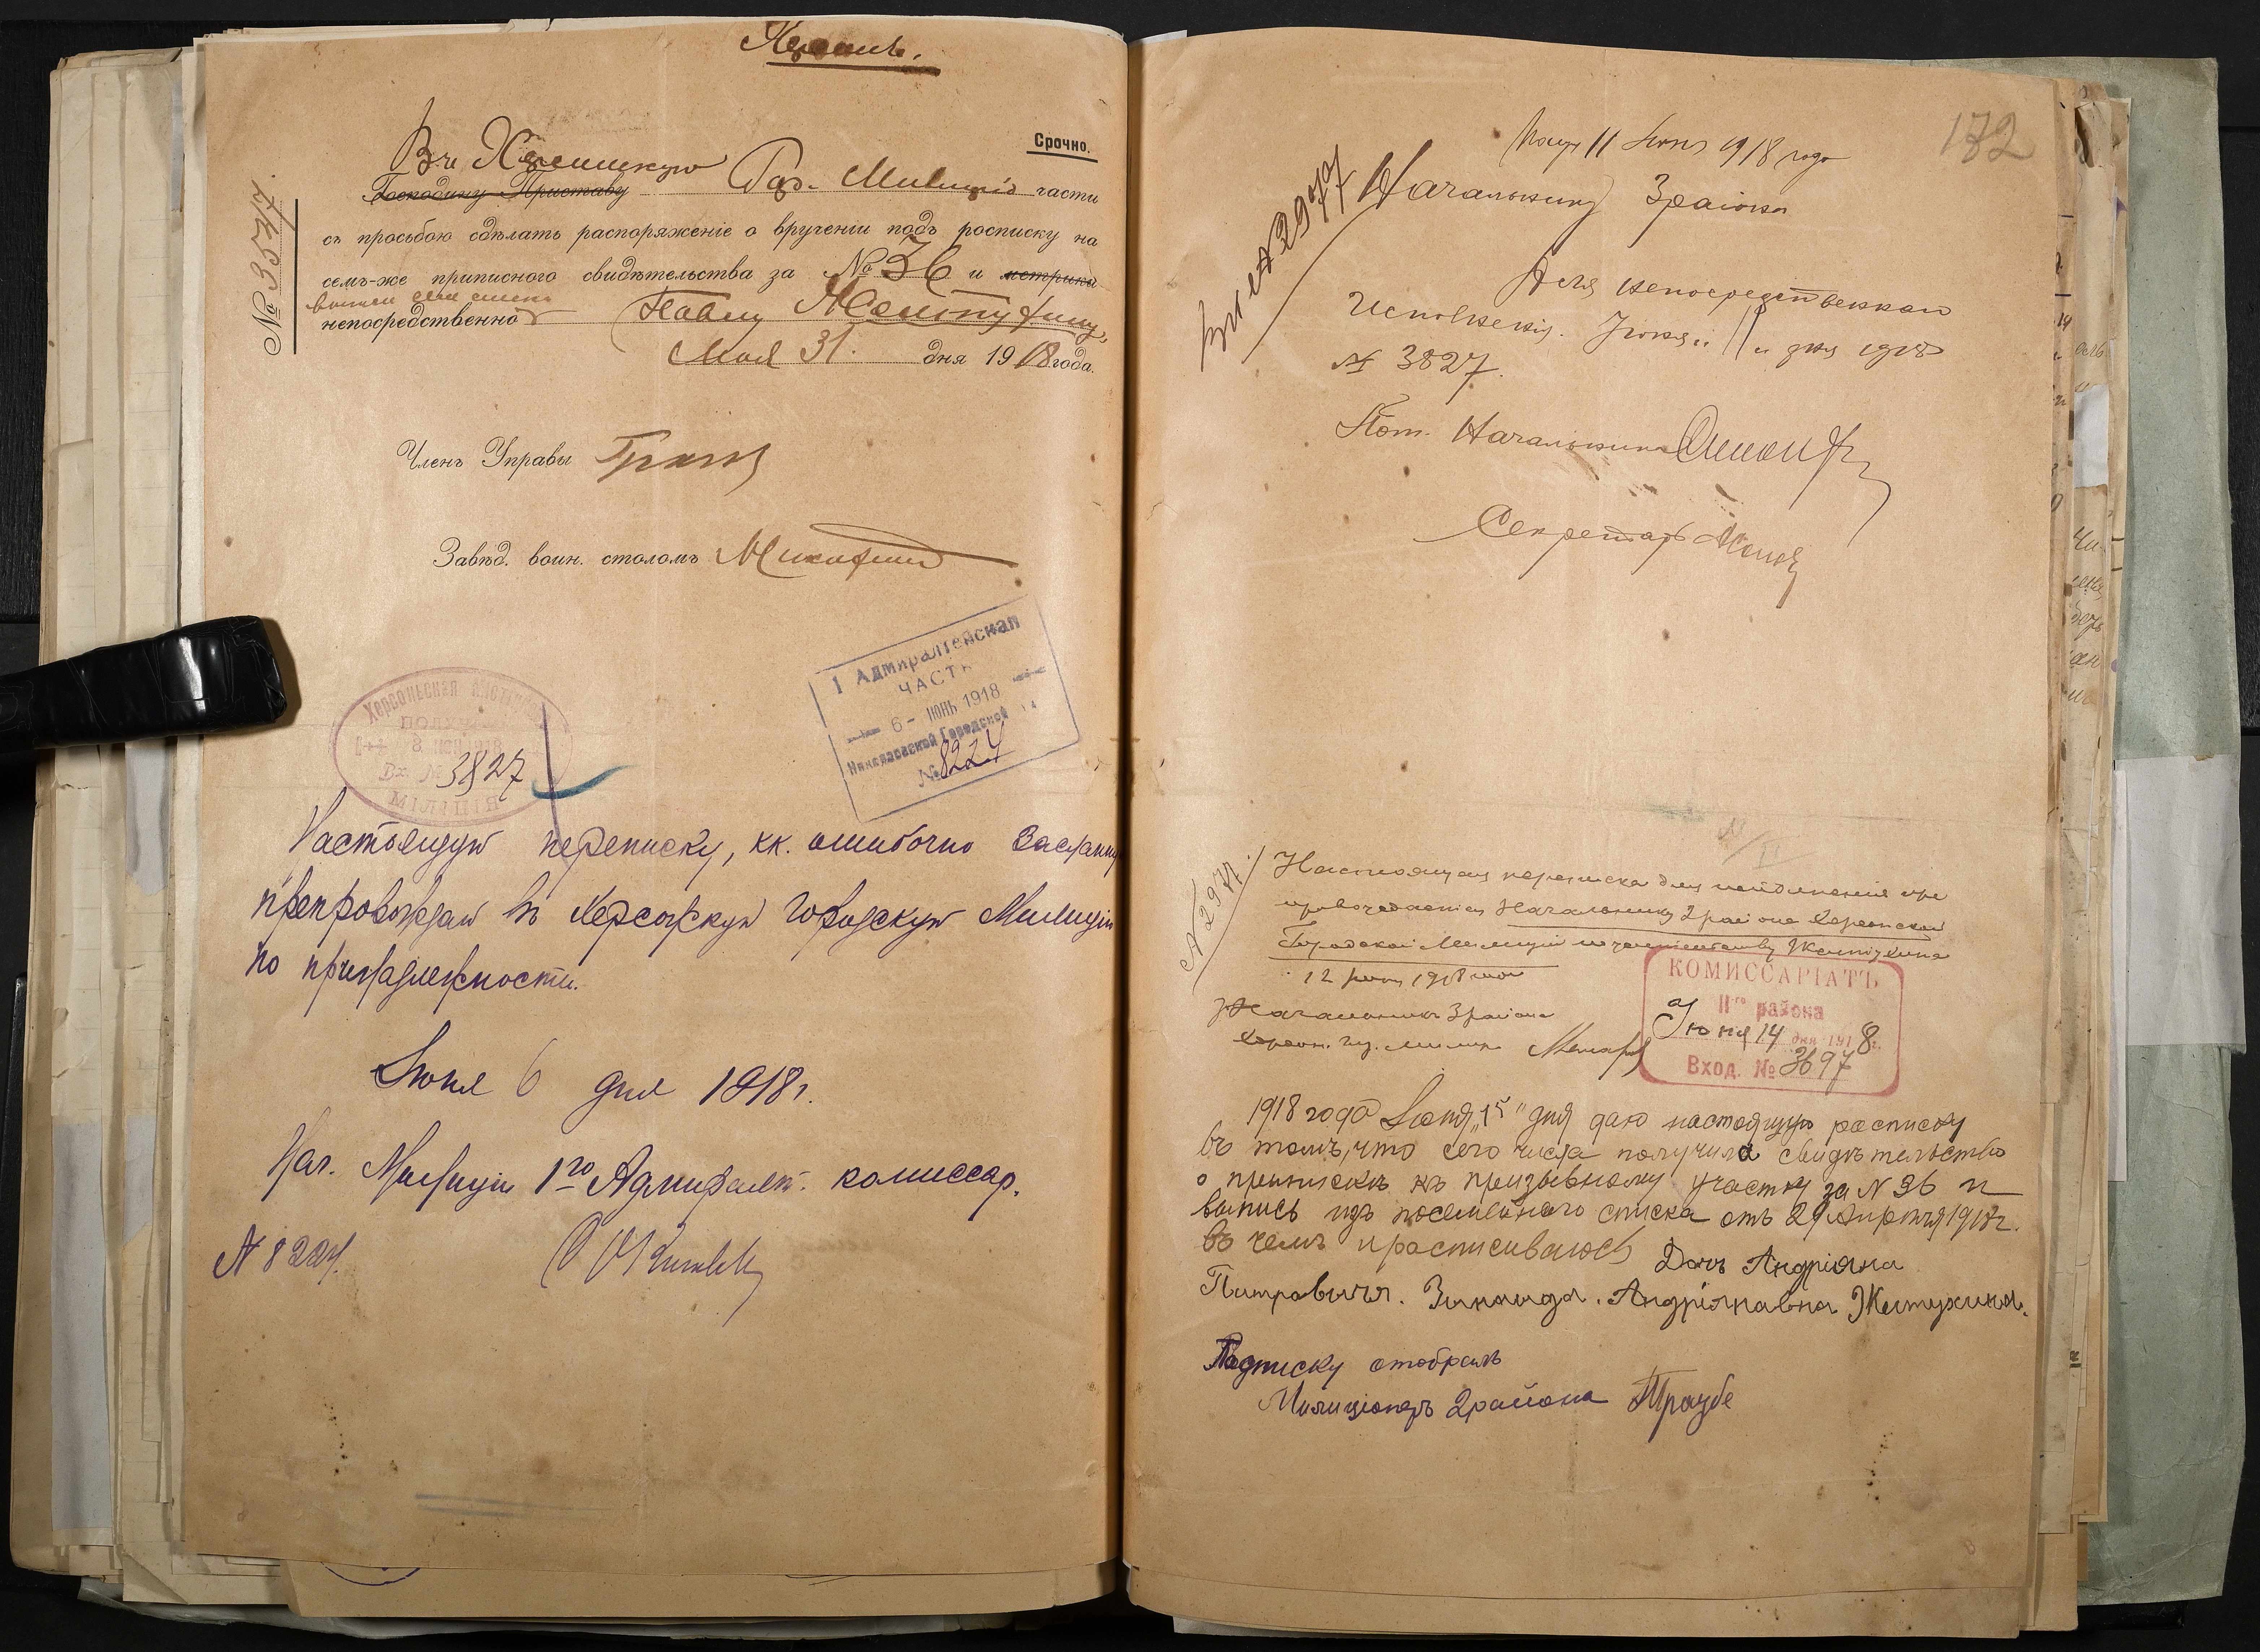 Срочно.
№ 3547.
Въ Гор. Милицію части
Господину Приставу
съ просьбою сдѣлать распоряженіе о врученіи подъ росписку на
семъ-же приписного свидѣтельства за № 36 и метрики
непосредственно Павлу Желтухину,
Мая 31. дня 1918 года.
Членъ Управы
Завѣд. воин. столомъ
I Адмиралтейская
ЧАСТЬ
6- ИЮНЬ 1918
Николаевской Городской
№ 8224
Херсонеская
8
Вх. № 3827
МІЛІЦІЯ
Настоящую переписку, кк. ошибочно засланную
препровождаю въ Херсонскую Городскую Милицію
по принадлежности.
Іюня 6 дня 1918 г.
Нач. Милиціи 1го Адмиралт. комиссар.
№ 8224.
172
11 Іюня 1918 года
№ 2977
Начальнику 3 района
Для непосредственнаго
исполненія. Іюня „11" дня 1918
№ 3827.
Пом. Начальника
Секретарь
№ 2977.
Настоящая переписка для исполненія пре
провождается Начальнику 2 района Херсонской
Городской Милиціи по жительству Желтухина
12 іюня 1918 года
Начальникъ 3 района
Херсон. гор. милиціи
КОМИССАРІАТЪ
IIго района
Іюня 14 дня 1918 г.
Вход. № 3697
1918 года Іюня „15" дня даю настоящую расписку
въ томъ, что сего числа получила свидѣтельство
о припискѣ къ призывному участку за № 36 и
выпись изъ посемейнаго списка отъ 29 Апрѣля 1918 г.
въ чемъ и расписиваюсь Дочь Андріяна
Питровичя. Зинаида. Андріяновна Желтухина.
Подписку отобралъ
Милиціонеръ 2 района Траубе